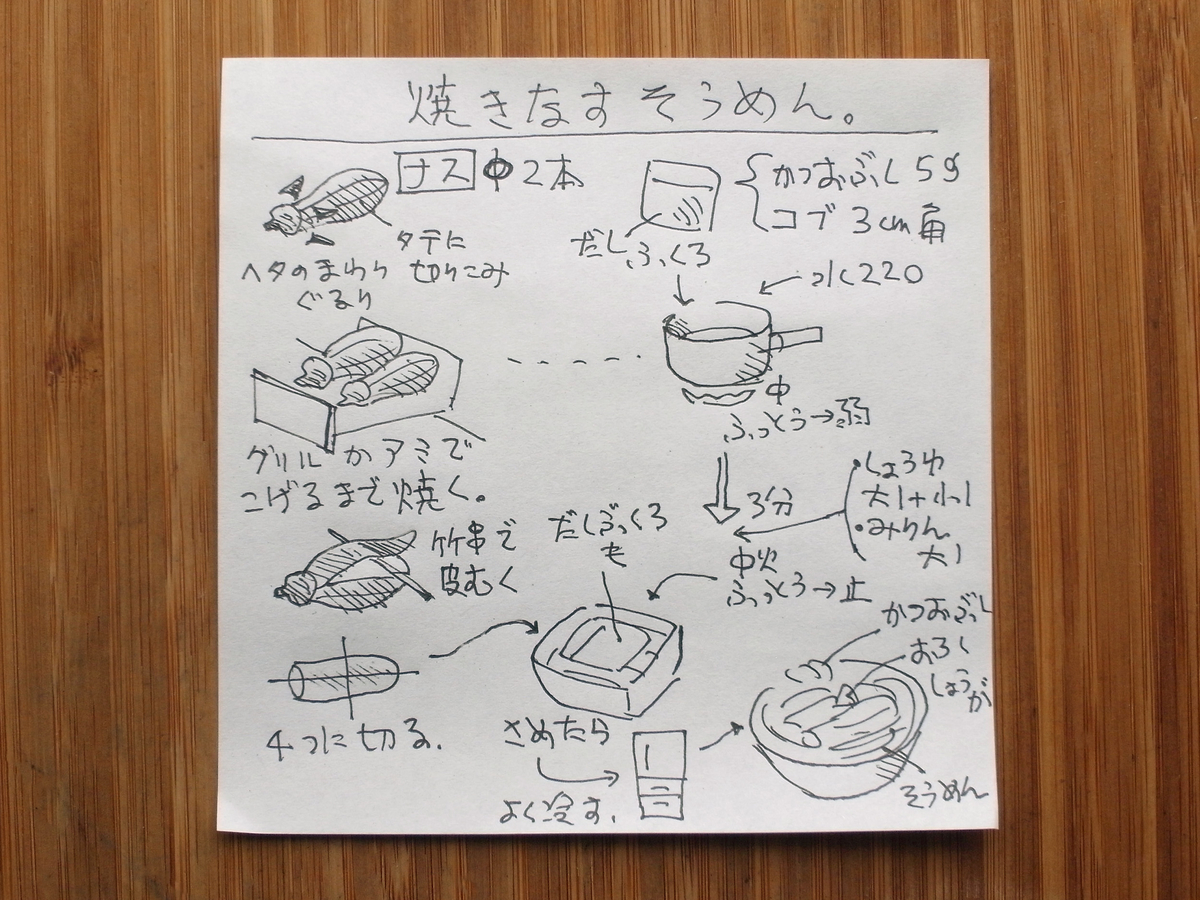 焼きなすそうめん。
ナス 中2本
タテに
切りこみ
ヘタのまわり
ぐるり
グリルかアミで
こげるまで焼く。
竹串で
皮むく
4つに切る.
だしぶくろ
かつおぶし 5g
コブ 3cm角
水220
中
ふっとう→弱
3分
しょうゆ
大1+小1
・みりん
大1
中火
ふっとう→止
だしぶくろ
も
さめたら
よく冷す.
かつおぶし
おろし
しょうが
そうめん